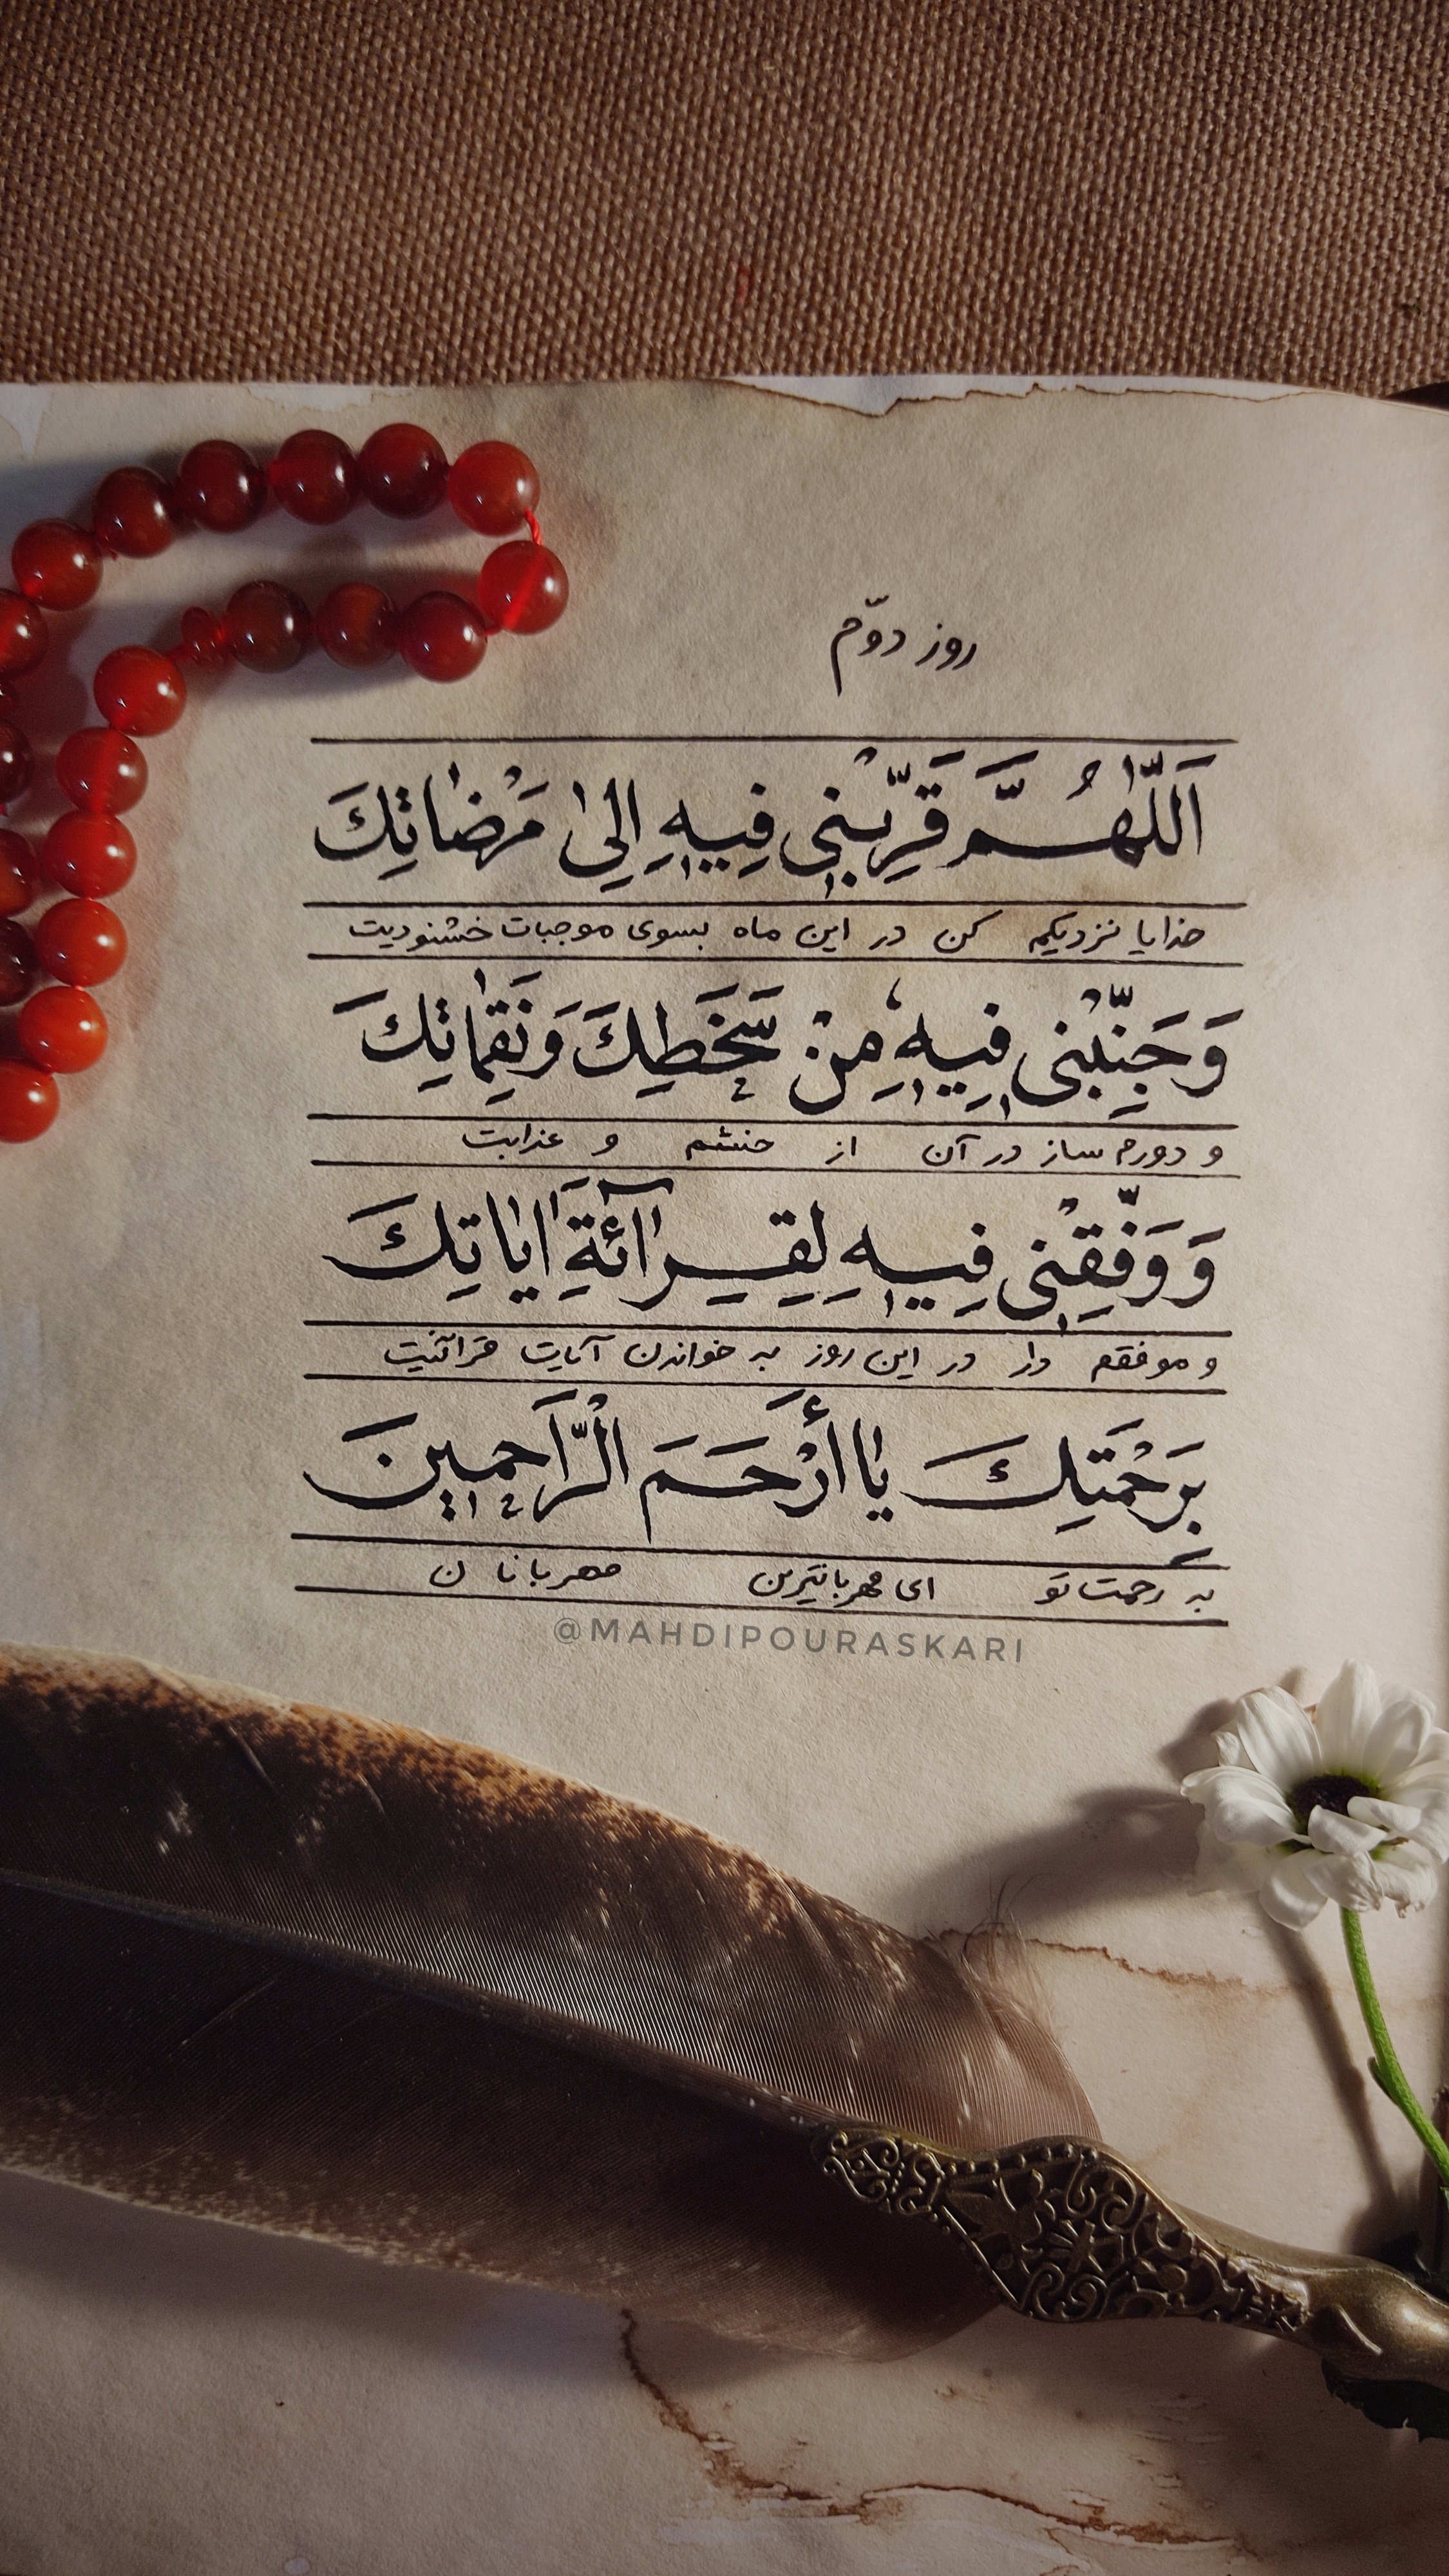 روز دوّم
اَللّٰهُمَّ قَرِّبْنى فيهِ اِلىٰ مَرْضاتِكَ
خدایا نزدیکم کن در این ماه بسوی موجبات خشنودیت
وَجَنِّبْنى فيهِ مِنْ سَخَطِكَ وَنَقِماتِكَ
و دورم ساز در آن از خشم و عذابت
وَوَفِّقْنى فيهِ لِقِرآئَةِ اٰياتِكَ
و موفقم دار در این روز به خواندن آیات قرآنیت
بِرَحْمَتِكَ يا أَرْحَمَ الْرَّاحِمينَ
به رحمت تو ای مهربانترین مهربانان
@MAHDIPOURASKARI